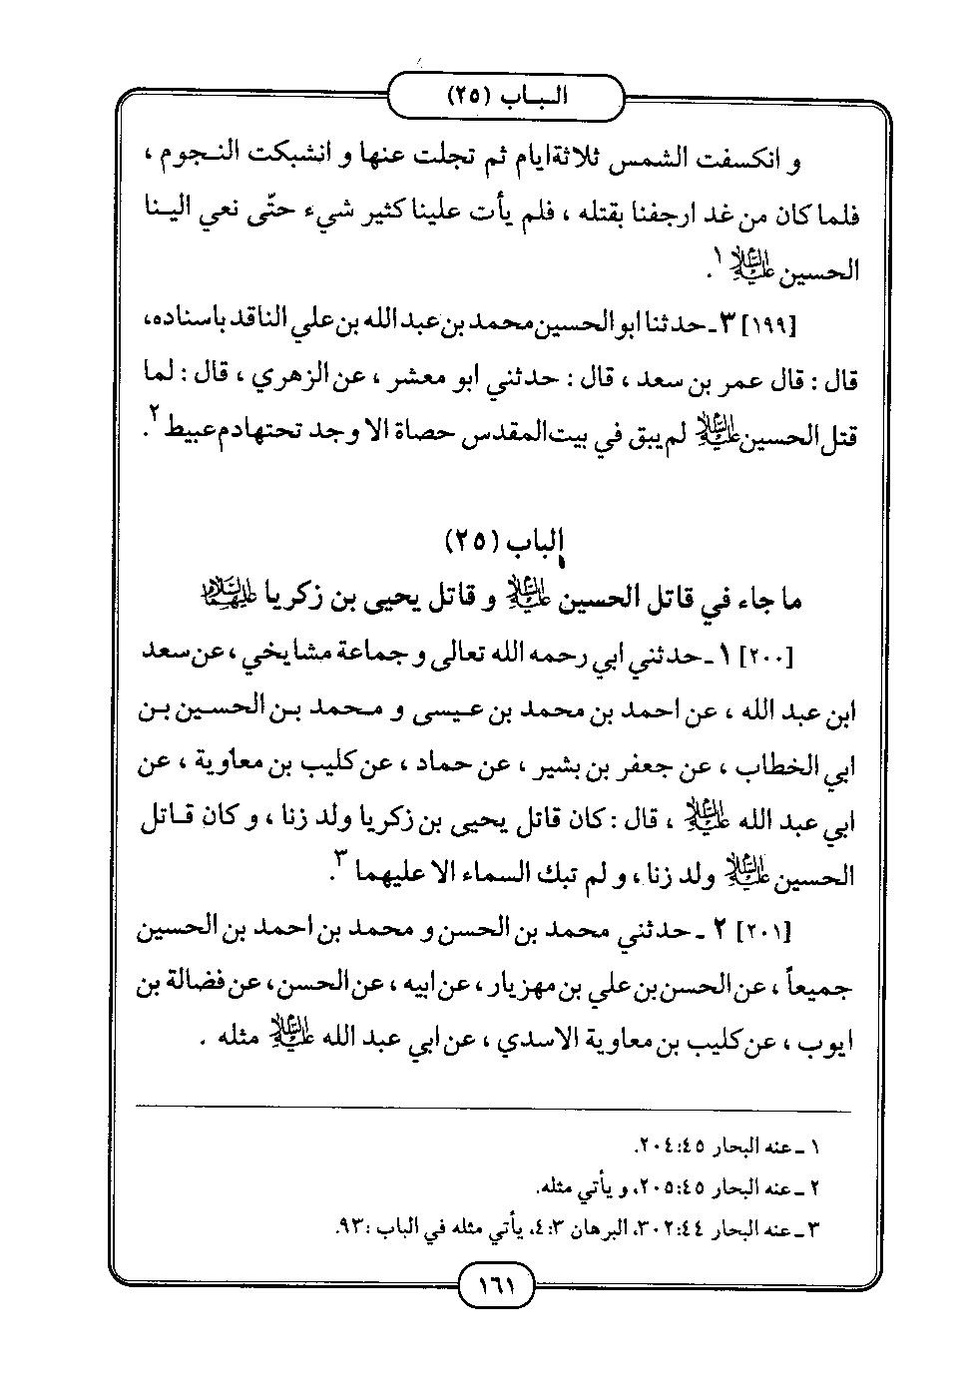 البـاب (٢٥)
و انكسفت الشمس ثلاثة ايام ثم تجلت عنها و انشبكت النـجوم ،
فلما كان من غد ارجفنا بقتله ، فلم يأت علينا كثير شيء حتّى نعي اليـنا
الحسين عليه السلام ١.
[١٩٩] ٣ ـ حدثنا ابو الحسين محمد بن عبد الله بن علي الناقد باسناده،
قال : قال عمر بن سعد ، قال : حدثني ابو معشر ، عن الزهري ، قال : لما
قتل الحسين عليه السلام لم يبق في بيت المقدس حصاة الا وجد تحتها دم عبيط ٢.
الباب (٢٥)
ما جاء في قاتل الحسين عليه السلام و قاتل يحيى بن زكريا عليهما السلام
[٢٠٠] ١ ـ حدثني ابي رحمه الله تعالى و جماعة مشايخي ، عن سعد
ابن عبد الله ، عن احمد بن محمد بن عيسى و محمد بن الحسين بن
ابي الخطاب ، عن جعفر بن بشير ، عن حماد ، عن كليب بن معاوية ، عن
ابي عبد الله عليه السلام ، قال : كان قاتل يحيى بن زكريا ولد زنا ، و كان قـاتل
الحسين عليه السلام ولد زنا ، و لم تبك السماء الا عليهما ٣.
[٢٠١] ٢ ـ حدثني محمد بن الحسن و محمد بن احمد بن الحسين
جميعاً ، عن الحسن بن علي بن مهزيار ، عن ابيه ، عن الحسن، عن فضالة بن
ايوب ، عن كليب بن معاوية الاسدي ، عن ابي عبد الله عليه السلام مثله .
١ ـ عنه البحار ٤٥:‏٢٠٤.
٢ ـ عنه البحار ٤٥:‏٢٠٥، و يأتي مثله.
٣ ـ عنه البحار ٤٤:‏٣٠٢، البرهان ٣:‏٤، يأتي مثله في الباب :٩٣.
١٦١